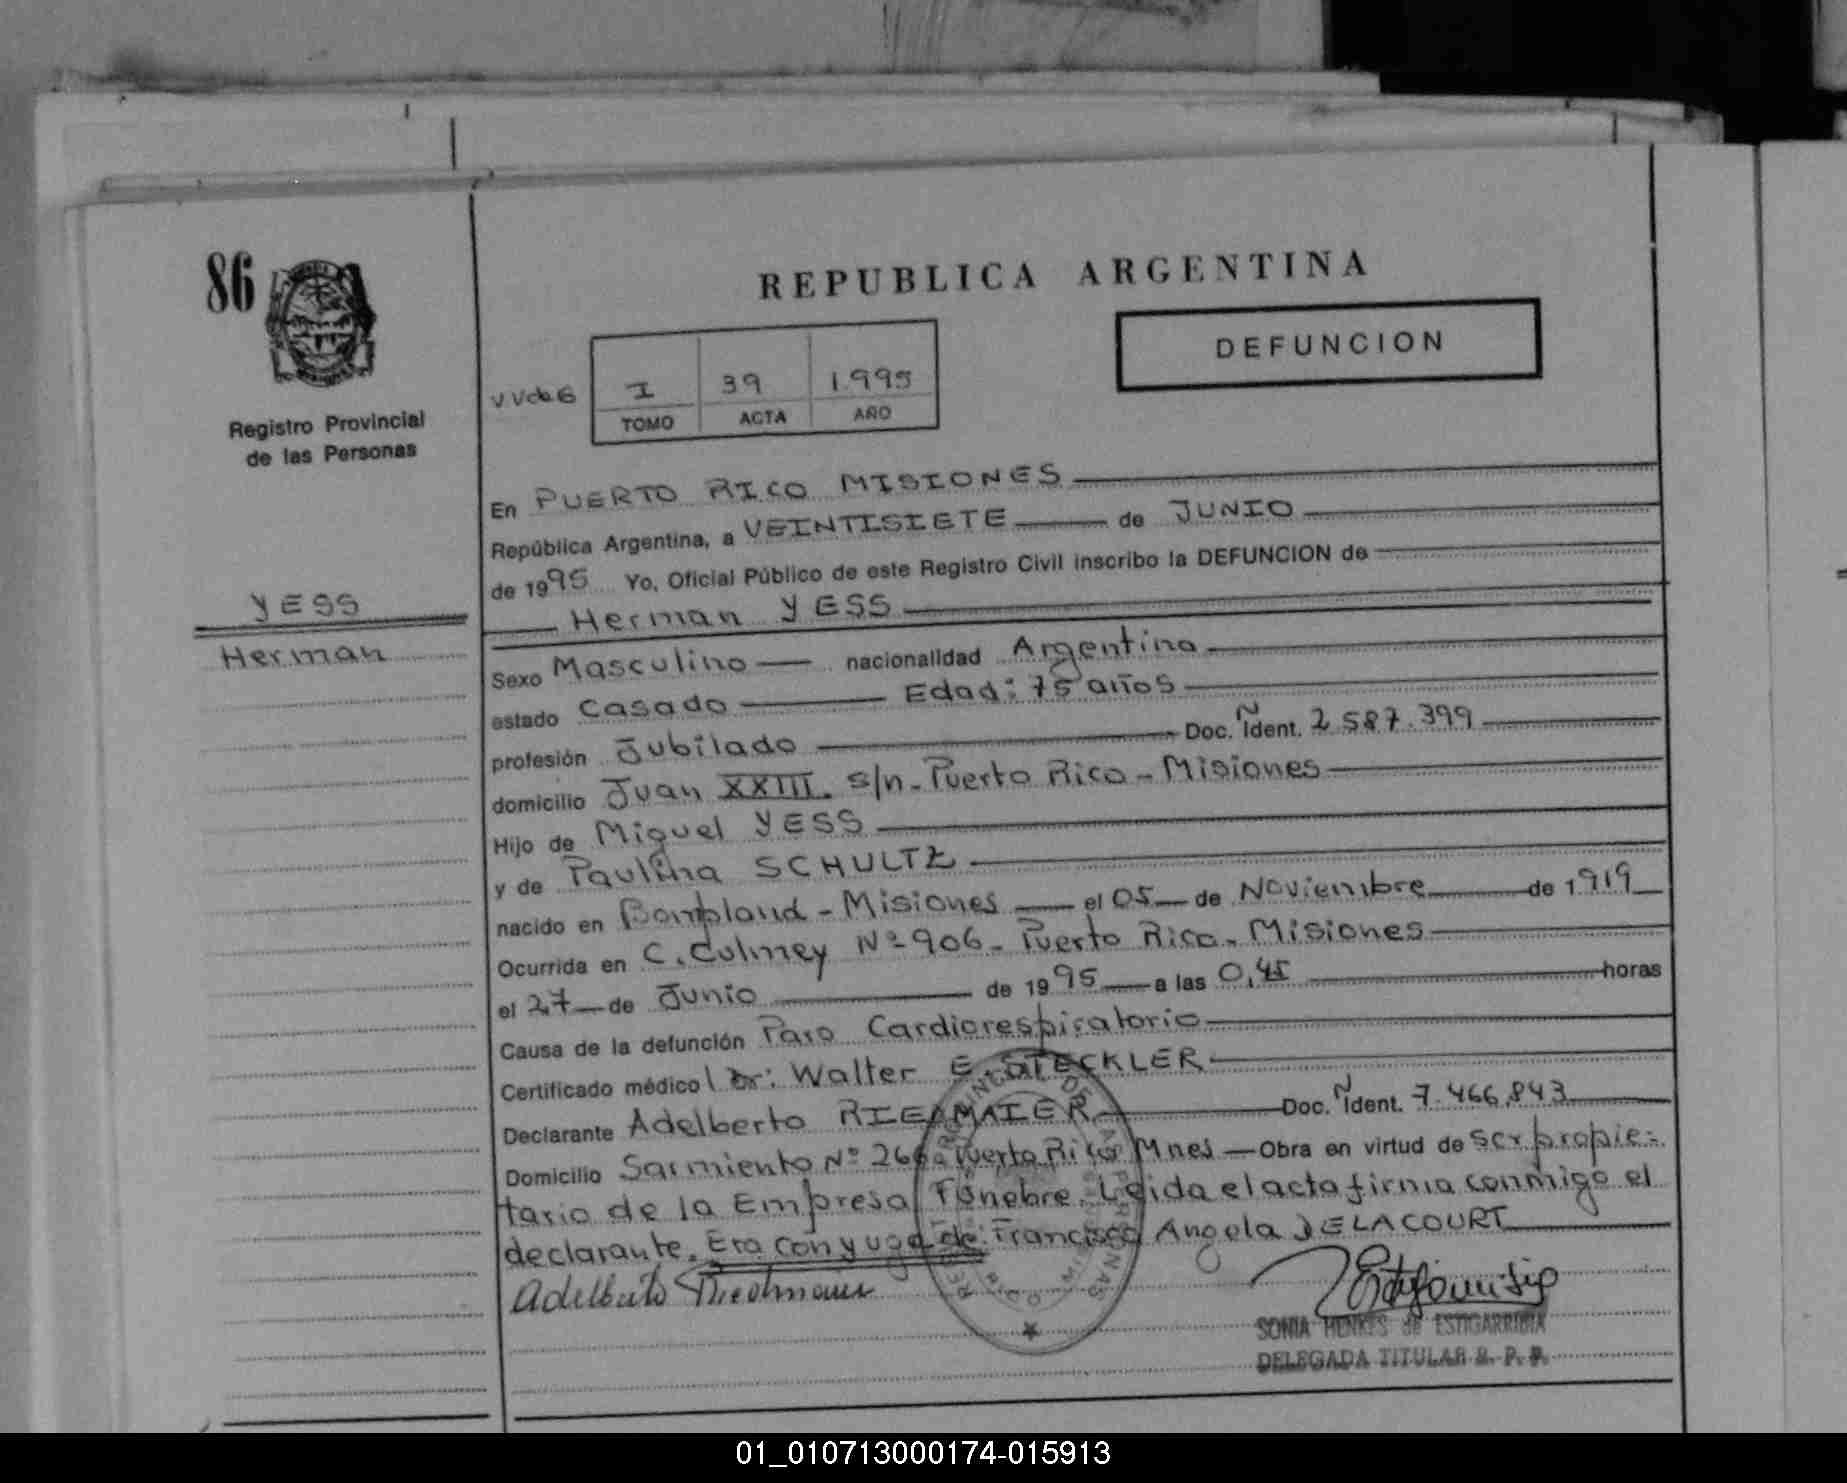 86
REPUBLICA ARGENTINA
DEFUNCION
Registro Provincial
de las Personas
I 39 1.995
TOMO ACTA AÑO
En PUERTO RICO MISIONES
República Argentina, a VEINTISIETE de JUNIO
de 1995 Yo, Oficial Público de este Registro Civil inscribo la DEFUNCION de
YESS
Herman YESS
Herman
Sexo Masculino nacionalidad Argentina
estado Casado Edad: 75 años
profesión Jubilado Doc. Ident. Ñ 2.587.399
domicilio Juan XXIII. s/n - Puerto Rico - Misiones
Hijo de Miguel YESS
y de Paulina SCHULTZ
nacido en Bompland - Misiones el 05 de Noviembre de 1919
Ocurrida en C. Culmey Nº 906 - Puerto Rico - Misiones
el 27 de Junio de 1995 a las 0,45 horas
Causa de la defunción Paro Cardiorespiratorio
Certificado médico Dr: Walter E. STECKLER
Declarante Adelberto RIEDMAIER Doc. Ident. Ñ 7.466.843
Domicilio Sarmiento Nº 266 - Puerto Rico Mnes Obra en virtud de ser propie-
tario de la Empresa Fúnebre. Leída el acta firma conmigo el
declarante. Era conyuge de: Francisca Angela DELACOURT
Adelberto
SONIA HENKES de ESTIGARRIBIA
DELEGADA TITULAR R. P. P.
01_010713000174-015913